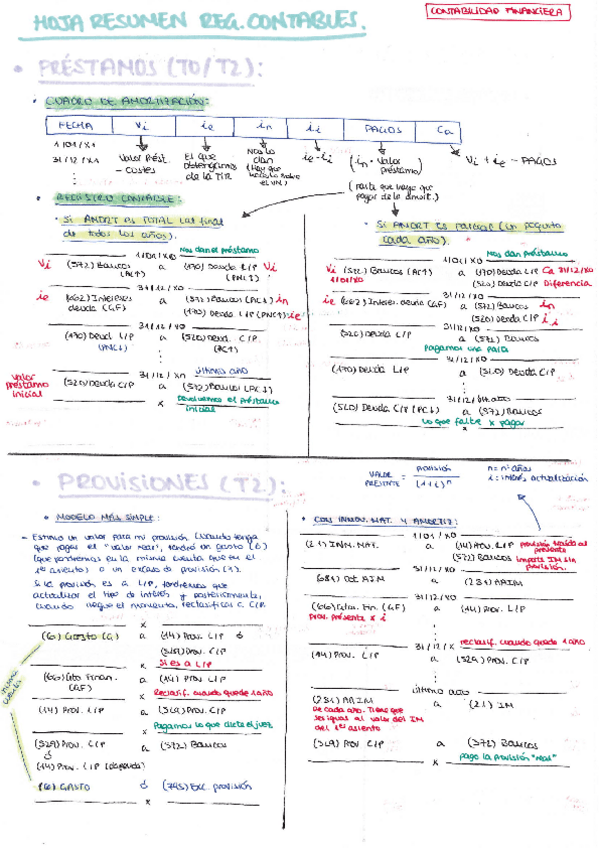 HOJA RESUMEN REG. CONTABLES.
CONTABILIDAD FINANCIERA
• PRÉSTAMOS (T0/T2):
• CUADRO DE AMORTIZACIÓN:
FECHA Vi ie in ii PAGOS Ca
1/01/X1
31/12/X1
Valor Prést. - costes
El que obtengamos de la TIR
Nos lo dan (Hay que hacerlo sobre el VN)
ie - ii
(in · Valor préstamo)
Vi + ie - PAGOS
(hasta que haya que pagar de la amort.)
• REGISTRO CONTABLE:
• SI AMORT ES TOTAL (al final
de todos los años).
1/01/X1 Nos dan el préstamo
Vi (572) Bancos a (170) Deuda L/P Vi
(AC↑) (PNC↑)
31/12/X1
ie (662) Intereses a (572) Bancos (AC↓) in
deuda (GF) (170) Deuda L/P (PNC↑) ie
(170) Deud. L/P a (520) Deud. C/P.
(PNC↓) (PC↑)
31/12/Xn último año
Valor préstamo inicial (520) Deuda C/P a (572) Bancos (AC↓)
x Devolvemos el préstamo
inicial
• SI AMORT ES PARCIAL (un poquito
cada año).
1/01/X0 Nos dan préstamo
Vi (572) Bancos (AC↑) a (170) Deuda L/P Ca 31/12/X0
1/01/X0 (520) Deuda C/P Diferencia
31/12/X0
ie (662) Interes. deuda (GF) a (572) Bancos in
(520) Deuda C/P ii
31/12/X0
(520) Deuda C/P a (572) Bancos
Pagamos una parte
31/12/X0
(170) Deuda L/P a (520) Deuda C/P
(520) Deuda C/P (PC↓) a (572) Bancos
lo que falte x pagar
• PROVISIONES (T2):
VALOR PRESENTE = provisión / (1+i)ⁿ
n = nº años
i = interés actualización
• MODELO MÁS SIMPLE:
- Estimo un valor para mi provisión (cuando tenga
que pagar el "valor real", tendré un gasto (6)
(que pondremos en la misma cuenta que en el
1er asiento) o un exceso de provisión (7).
Si la provisión es a L/P, tendremos que
actualizar el tipo de interés y posteriormente,
cuando llegue el momento, reclasificar a C/P.
x
(6) Gasto (G) a (14) Prov. L/P ó
(529) Prov. C/P
x Si es a L/P
(660) Gto Finan. a (14) Prov. L/P
(GF)
x Reclasif. cuando quede 1 año
(14) Prov. L/P a (529) Prov. C/P
x Pagamos lo que dicte el juez
(529) Prov. C/P a (572) Bancos
ó
(14) Prov. L/P
(6) GASTO ó (795) Exc. provisión
x
misma cuenta
• CON INMOV. MAT. Y AMORTIZ:
1/01/X0
(21) INM. MAT. a (14) Prov. L/P provisión traída al presente
(572) Bancos importe IM sin provisión.
31/12/X0
(681) Dot AIM a (281) AAIM
31/12/X0
(660) Gtos. Fin. (GF) a (14) Prov. L/P
Prov. presente x i
31/12/X reclasif. cuando quede 1 año
(14) Prov. L/P a (529) Prov. C/P
último año
(281) AAIM a (21) IM
De cada año. Tiene que
ser igual al valor del IM
del 1er asiento
(529) Prov C/P a (572) Bancos
x pago la provisión "real"